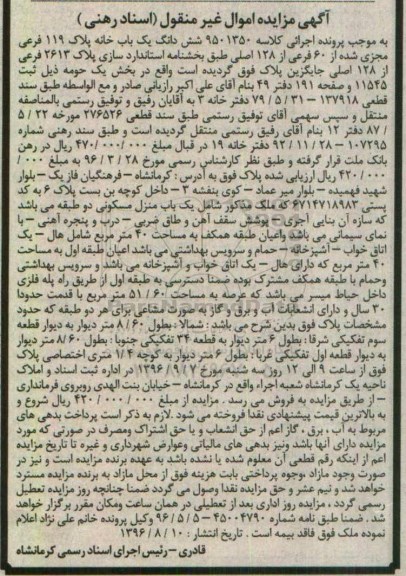 آگهی مزایده اموال غیر منقول (اسناد رهنی)
به موجب پرونده اجرائی کلاسه ۹۵۰۱۳۵۰ شش دانگ یک باب خانه پلاک ۱۱۹ فرعی
مجزی شده از ۶۰ فرعی از ۱۲۸ اصلی طبق بخشنامه استاندارد سازی پلاک ۲۶۱۳ فرعی
از ۱۲۸ اصلی جایگزین پلاک فوق گردیده است واقع در بخش یک حومه ذیل ثبت
۱۱۵۴۵ و صفحه ۱۹۱ دفتر ۴۹ بنام آقای علی اکبر رازیانی صادر و مع الواسطه طبق سند
قطعی ۱۳۷۹۱۸ – ۳۱ / ۵ / ۷۹ دفتر خانه ۳ به آقایان رفیق و توفیق رستمی بالمناصفه
منتقل و سپس سهمی آقای توفیق رستمی طبق سند قطعی ۲۷۶۵۲۶ مورخه ۲۲ / ۵
/ ۸۷ دفتر ۱۲ بنام آقای رفیق رستمی منتقل گردیده است و طبق سند رهنی شماره
۱۰۷۲۹۵ – ۲۸ / ۱۱ / ۹۲ دفتر خانه ۱۹ در قبال مبلغ ۴۷۰/۰۰۰/۰۰۰ ریال در رهن
بانک ملت قرار گرفته و طبق نظر کارشناس رسمی مورخ ۲۸ / ۳ / ۹۶ به مبلغ ۰۰۰/
۴۲۰/۰۰۰ ریال ارزیابی شده پلاک فوق به آدرس : کرمانشاه – فرهنگیان فاز یک – بلوار
شهید فهمیده – بلوار میر عماد – کوی بنفشه ۳ – داخل کوچه بن بست پلاک ۶ به کد
پستی ۶۷۱۴۷۱۸۹۸۳ که ملک مذکور شامل یک باب منزل مسکونی دو طبقه می باشد
که سازه آن بنایی آجری – پوشش سقف آهن و طاق ضربی – درب و پنجره آهنی – با
نمای سیمانی می باشد واعیان طبقه همکف به مساحت ۴۰ متر مربع شامل هال – یک
اتاق خواب – آشپزخانه – حمام و سرویس بهداشتی می باشد اعیان طبقه اول به مساحت
۴۰ متر مربع که دارای هال – یک اتاق خواب و آشپزخانه می باشد و سرویس بهداشتی
وحمام با طبقه همکف مشترک بوده ضمنا دسترسی به طبقه اول از طریق راه پله فلزی
داخل حیاط میسر می باشد که عرصه به مساحت ۶۰ / ۵۱ متر مربع با قدمت حدودا
۳۰ سال و دارای انشعابات آب و برق و گاز به صورت مشاعی برای هر دو طبقه که حدود
مشخصات پلاک فوق بدین شرح می باشد : شمالا : بطول ۶۰ / ۸ متر دیوار به دیوار قطعه
سوم تفکیکی شرقا : بطول ۶ متر دیوار به قطعه ۳۴ تفکیکی جنوبا : بطول ۶۰ / ۸ متر دیوار
به دیوار قطعه اول تفکیکی غربا : بطول ۶ متر دیوار به کوچه ۴ / ۱ متری اختصاصی پلاک
فوق از ساعت ۹ الی ۱۲ روز سه شنبه مورخ ۷ / ۹ / ۱۳۹۶ در اداره ثبت اسناد و املاک
ناحیه یک کرمانشاه شعبه اجراء واقع در کرمانشاه – خیابان بنت الهدی روبروی فرمانداری
– از طریق مزایده به فروش می رسد . مزایده از مبلغ ۴۲۰/۰۰۰/۰۰۰ ریال شروع و
به بالاترین قیمت پیشنهادی نقدا فروخته می شود . لازم به ذکر است پرداخت بدهی های
مربوط به آب ، برق ، گاز اعم از حق انشعاب و یا حق اشتراک ومصرف در صورتی که مورد
مزایده دارای آنها باشد ونیز بدهی های مالیاتی وعوارض شهرداری و غیره تا تاریخ مزایده
اعم از اینکه رقم قطعی آن معلوم شده یا نشده باشد به عهده برنده مزایده است و نیز در
صورت وجود مازاد ،وجوه پرداختی بابت هزینه فوق از محل مازاد به برنده مزایده مسترد
خواهد شد و نیم عشر و حق مزایده نقدا وصول می گردد ضمنا چنانچه روز مزایده تعطیل
رسمی گردد ، مزایده روز اداری بعد از تعطیلی در همان ساعت ومکان مقرر برگزار خواهد
شد . ضمنا طبق نامه شماره ۴۵۰۰۴۷۹۰ – ۵ / ۵ / ۹۶ وکیل پرونده خانم علی نژاد اعلام
نموده ملک فوق فاقد بیمه است . تاریخ انتشار : ۱۰ / ۸ / ۱۳۹۶
قادری – رئیس اجرای اسناد رسمی کرمانشاه